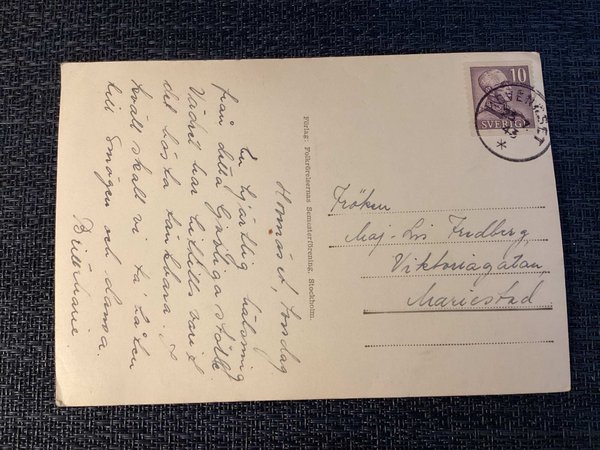 Hovenäset, Söndag
En hjärtlig hälsning
från detta härliga ställe.
Vädret har hittills varit
det bästa tänkbara. I
kväll skall vi ta båten
till Smögen och dansa.
Britt-Marie
Förlag: Folkrörelsernas Semesterförening, Stockholm.
10
SVERIGE
HOVENÄSET
Fröken
Maj-Lis Fredberg,
Viktoriagatan,
Mariestad